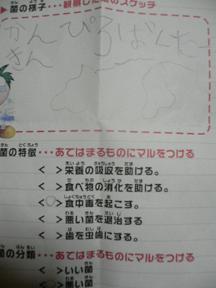 菌の様子・・・観察した菌のスケッチ
かんぴろばくたー
きん
菌の特徴・・・あてはまるものにマルをつける
< >栄養の吸収を助ける。
< >食べ物の消化を助ける。
<○>食中毒を起こす。
< >悪い菌を退治する
< >歯を虫歯にする。
菌の分類・・・あてはまるものにマルをつける
< >いい菌
< >悪い菌